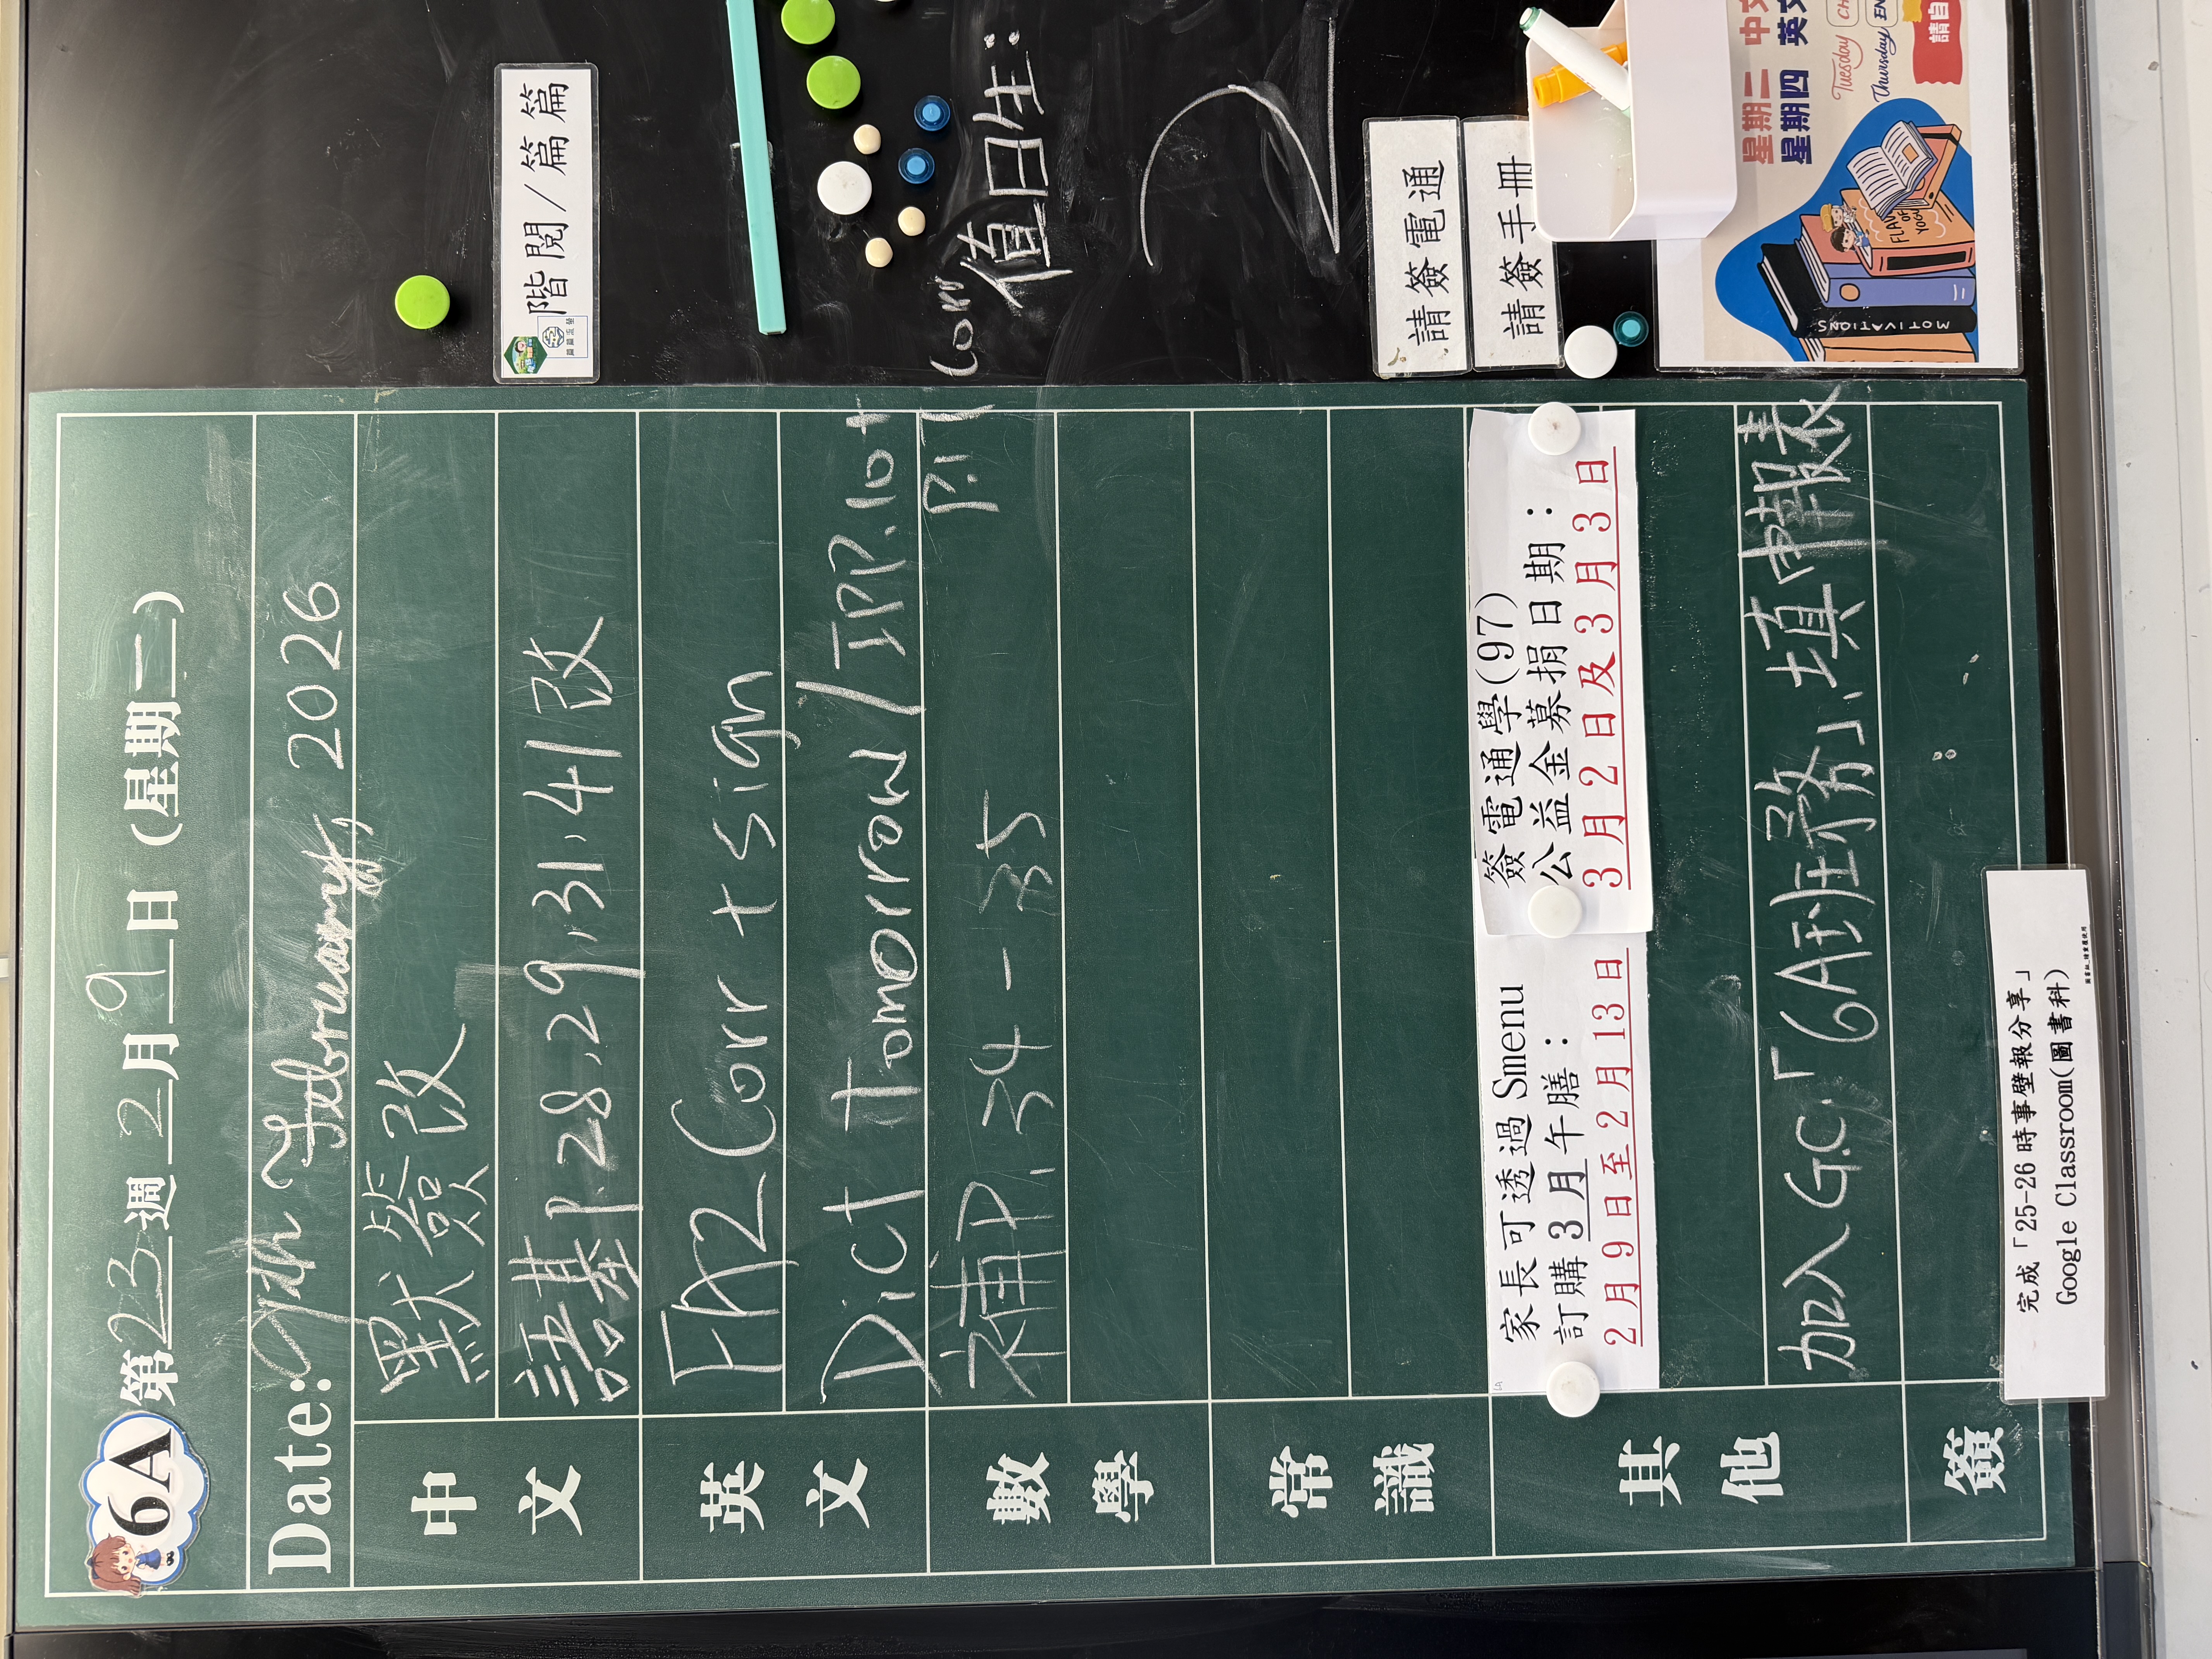 6A 第23週 2月9日 (星期一)
Date: 9th February, 2026
中文
默簽改
語基P.28,29,31,41改
英文
FA2 Corr + sign
Dict tomorrow / IPP.10+ Corr
數學
補P.34-35 P.1
常識
其他
家長可透過 Smenu
訂購 3 月午膳:
2 月 9 日至 2 月 13 日
簽電通學(97)
公益金募捐日期:
3 月 2 日及 3 月 3 日
加入G.C.「6A班務」、填申報表
簽
完成「25-26 時事壁報分享」
Google Classroom(圖書科)
階閱/篇篇
值日生:
2
請簽電通
請簽手冊
星期二 中文
星期四 英文
Tuesday
Thursday
請自
MOTIVATIONS